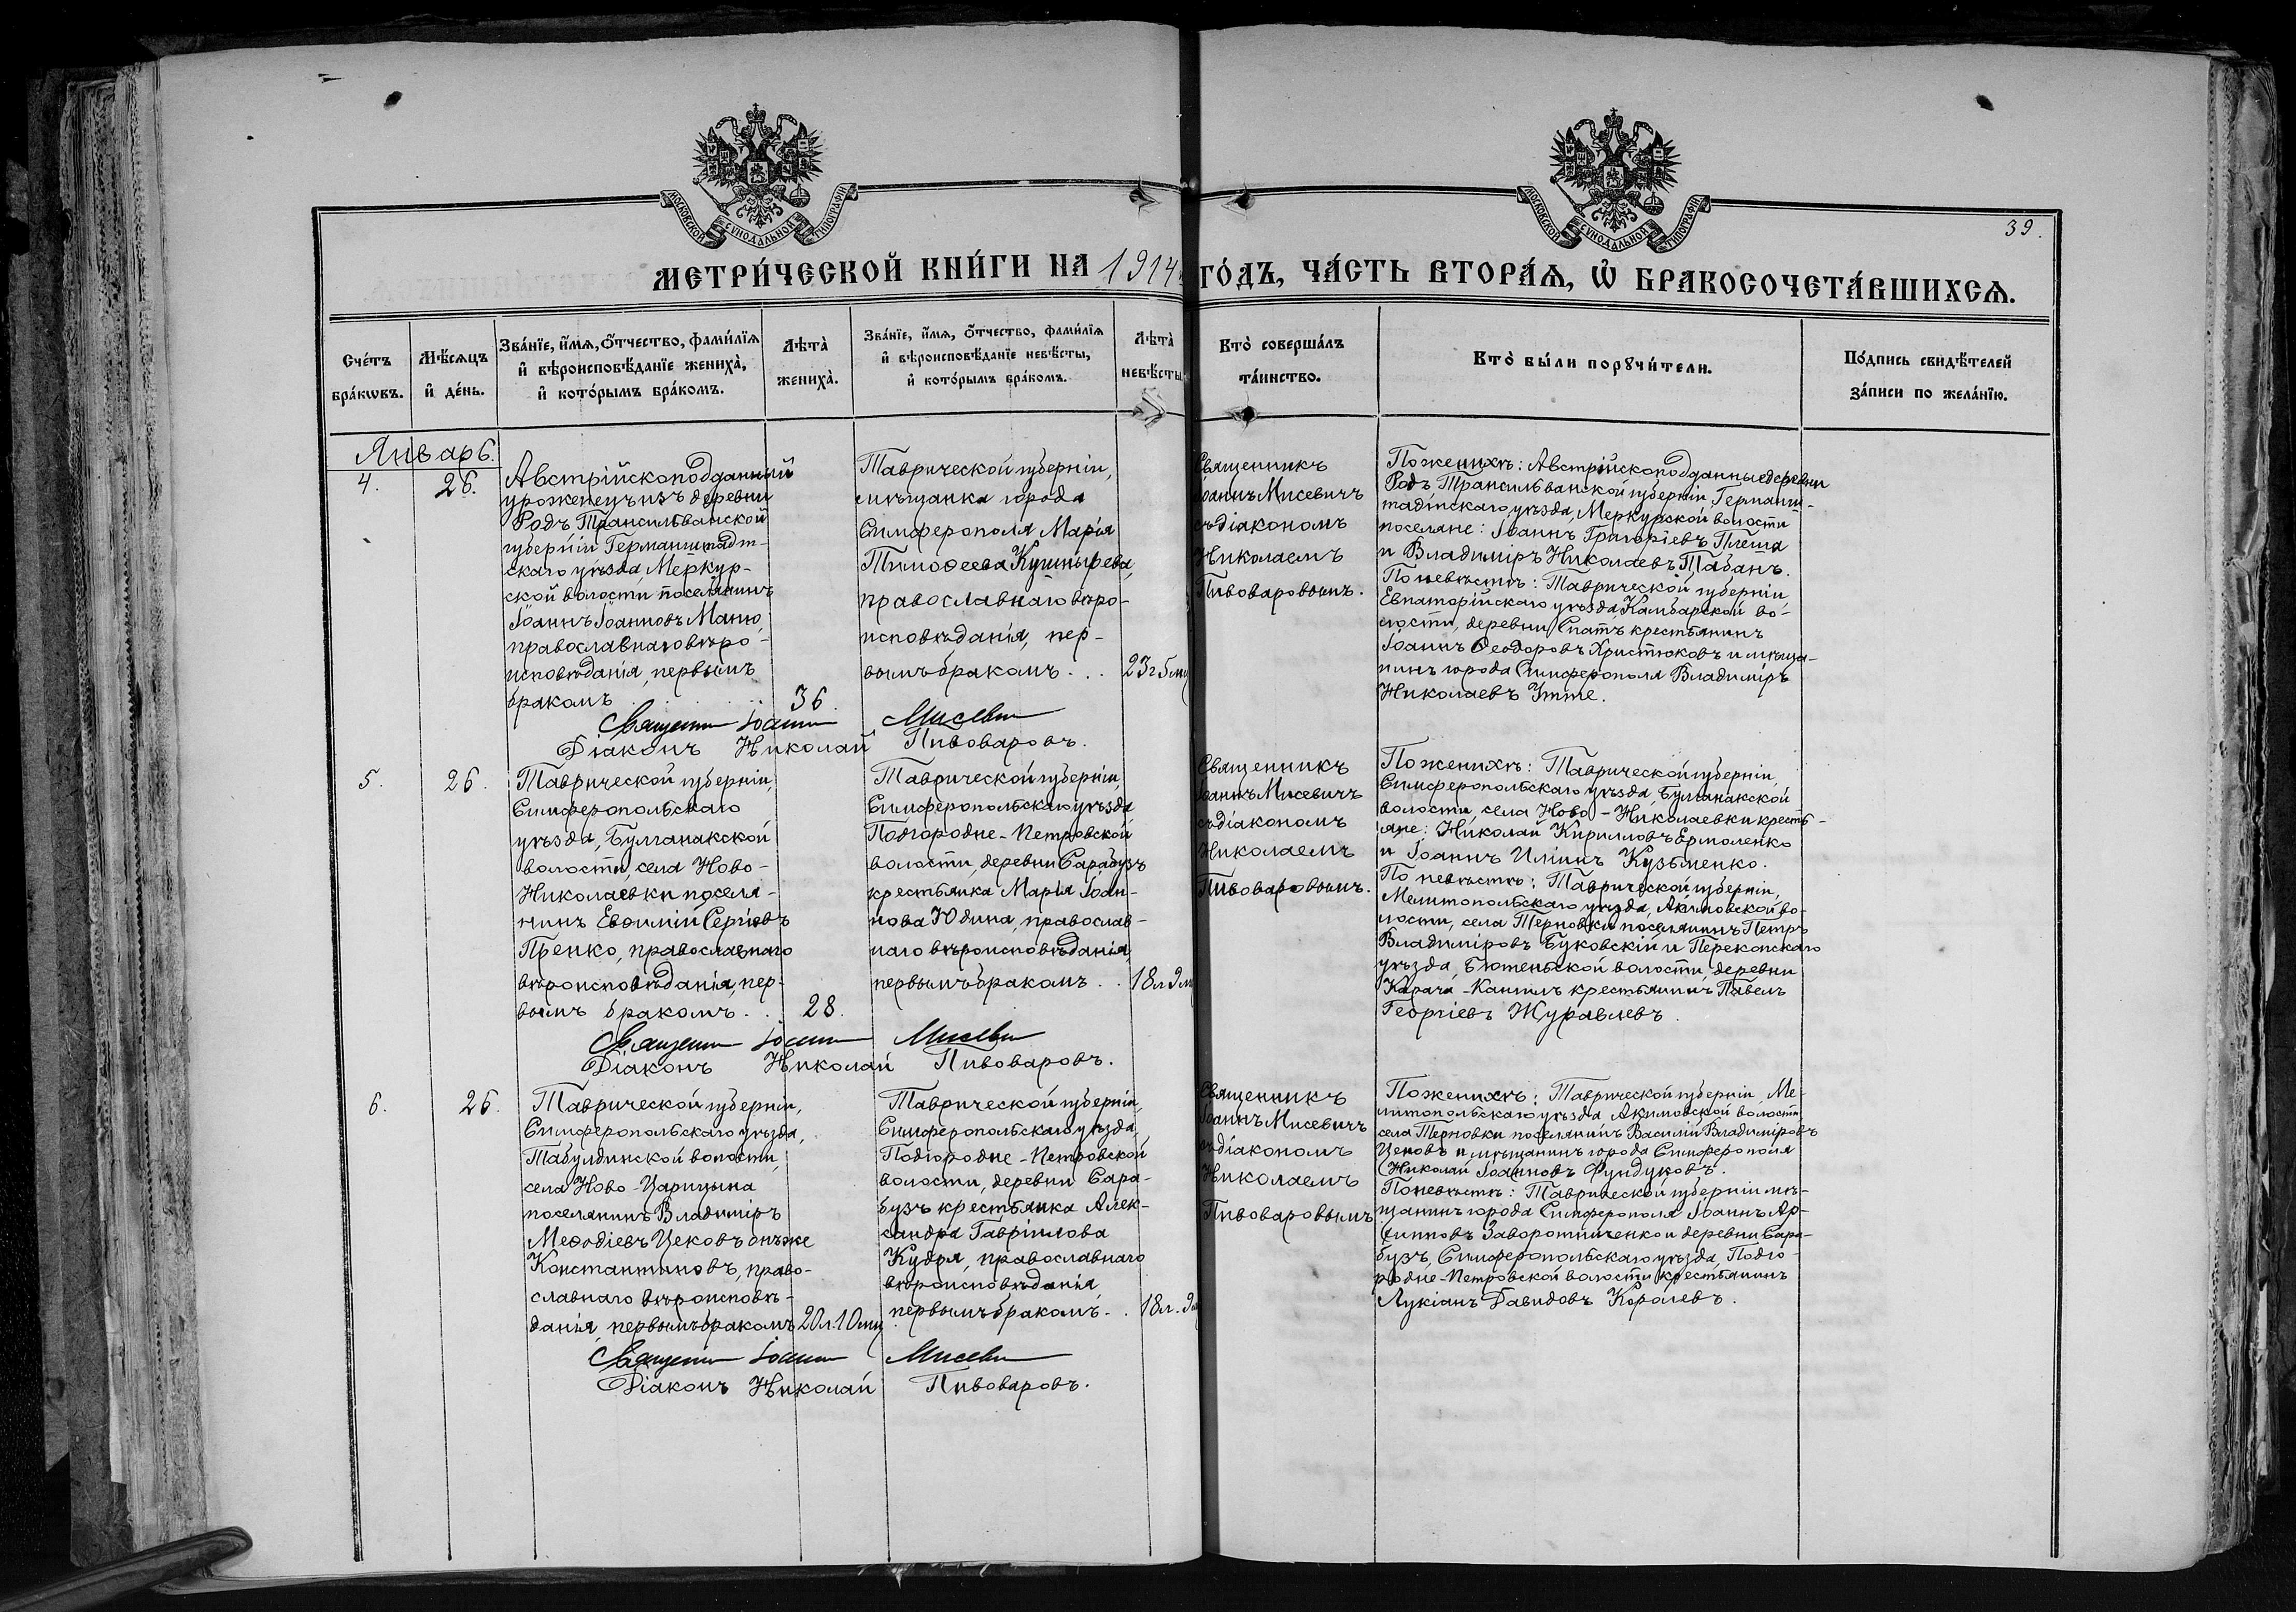 МОСКОВСКОЙ СУНОДАЛЬНОЙ ТИПОГРАФІИ
МОСКОВСКОЙ СУНОДАЛЬНОЙ ТИПОГРАФІИ
39.
МЕТРИ́ЧЕСКОЙ КНИ́ГИ НА 1914 ГО́ДЪ, ЧА́СТЬ ВТОРА́Ѧ, Ѡ҆ БРАКОСОЧЕТА́ВШИХСѦ.
Сче́тъ
бра́кѡвъ.
Мѣ́сѧцъ
и҆ де́нь.
Зва́нїе, и҆́мѧ, ѻ҆́тчество, фами́лїѧ
и҆ вѣроисповѣ́данїе жениха̀,
и҆ кото́рымъ бра́комъ.
Лѣта̀
жениха̀.
Зва́нїе, и҆́мѧ, ѻ҆́тчество, фами́лїѧ
и҆ вѣроисповѣ́данїе невѣ́сты,
и҆ кото́рымъ бра́комъ.
Лѣта̀
невѣ́сты
Кто̀ соверша́лъ
та́инство.
Кто̀ бы́ли порꙋчи́тели.
По́дпись свидѣ́телей
за́писи по жела́нїю.
Январь.
4.
26.
Австрійскоподданный
уроженецъ изъ деревни
Родъ Трансильванской
губерніи Германштадт-
скаго уѣзда, Меркур-
ской волости поселянинъ
Іоаннъ Іоанновъ Маню,
православнаго вѣро-
исповѣданія, первымъ
бракомъ . . . . 36.
Таврической губерніи,
мѣщанка города
Симферополя Марія
Тимоѳеева Кушнырева,
православнаго вѣро-
исповѣданія, пер-
вымъ бракомъ . . . 23 г 5 м
Священникъ
Іоаннъ Мисевичъ
съ діакономъ
Николаемъ
Пивоваровымъ.
По женихѣ: Австрійскоподданные деревни
Родъ Трансильванской губерніи Германш-
тадтскаго уѣзда, Меркурской волости
поселяне: Іоаннъ Григоріевъ Плеша
и Владиміръ Николаевъ Табанъ.
По невѣстѣ: Таврической губерніи
Евпаторійскаго уѣзда, Камбарской во-
лости, деревни Спатъ крестьянинъ
Іоаннъ Ѳеодоровъ Христюковъ и мѣща-
нинъ города Симферополя Владиміръ
Николаевъ Утте.
Священникъ Іоаннъ Мисевичъ
Діаконъ Николай Пивоваровъ.
5.
26.
Таврической губерніи,
Симферопольскаго
уѣзда, Булганакской
волости, села Ново-
Николаевки поселя-
нинъ Евѳимій Сергіевъ
Пренко, православнаго
вѣроисповѣданія, пер-
вымъ бракомъ . . 28.
Таврической губерніи,
Симферопольскаго уѣзда
Подгородне-Петровской
волости, деревни Сарабузъ
крестьянка Марія Іоан-
нова Юдина, православ-
наго вѣроисповѣданія,
первымъ бракомъ . . 18 л 9 м
Священникъ
Іоаннъ Мисевичъ
съ діакономъ
Николаемъ
Пивоваровымъ.
По женихѣ: Таврической губерніи,
Симферопольскаго уѣзда, Булганакской
волости, села Ново-Николаевки кресть-
яне: Николай Кирилловъ Ермоленко
и Іоаннъ Иліинъ Кузьменко.
По невѣстѣ: Таврической губерніи,
Мелитопольскаго уѣзда, Акимовской во-
лости, села Терновки поселянинъ Петръ
Владиміровъ Буковскій и Перекопскаго
уѣзда, Бютеньской волости, деревни
Карача-Кангилъ крестьянинъ Павелъ
Георгіевъ Журавлевъ.
Священникъ Іоаннъ Мисевичъ
Діаконъ Николай Пивоваровъ.
6.
26.
Таврической губерніи,
Симферопольскаго уѣзда,
Табулдинской волости,
села Ново-Царицына
поселянинъ Владиміръ
Меѳодіевъ Цековъ онъ же
Константиновъ, право-
славнаго вѣроисповѣ-
данія, первымъ бракомъ 20 л. 10 мц
Таврической губерніи,
Симферопольскаго уѣзда,
Подгородне-Петровской
волости, деревни Сара-
бузъ крестьянка Алек-
сандра Гавріилова
Кудря, православнаго
вѣроисповѣданія,
первымъ бракомъ . . 18 л. 9 м
Священникъ
Іоаннъ Мисевичъ
съ діакономъ
Николаемъ
Пивоваровымъ
По женихѣ: Таврической губерніи, Ме-
литопольскаго уѣзда Акимовской волости
села Терновки поселянинъ Василій Владиміровъ
Цековъ и мѣщанинъ города Симферополя
Николай Іоанновъ Фундуковъ.
По невѣстѣ: Таврической губерніи мѣ-
щанинъ города Симферополя Іоаннъ Ар-
хипповъ Заворотниченко и деревни Сара-
бузъ, Симферопольскаго уѣзда, Подго-
родне-Петровской волости крестьянинъ
Лукіанъ Давидовъ Королевъ.
Священникъ Іоаннъ Мисевичъ
Діаконъ Николай Пивоваровъ.